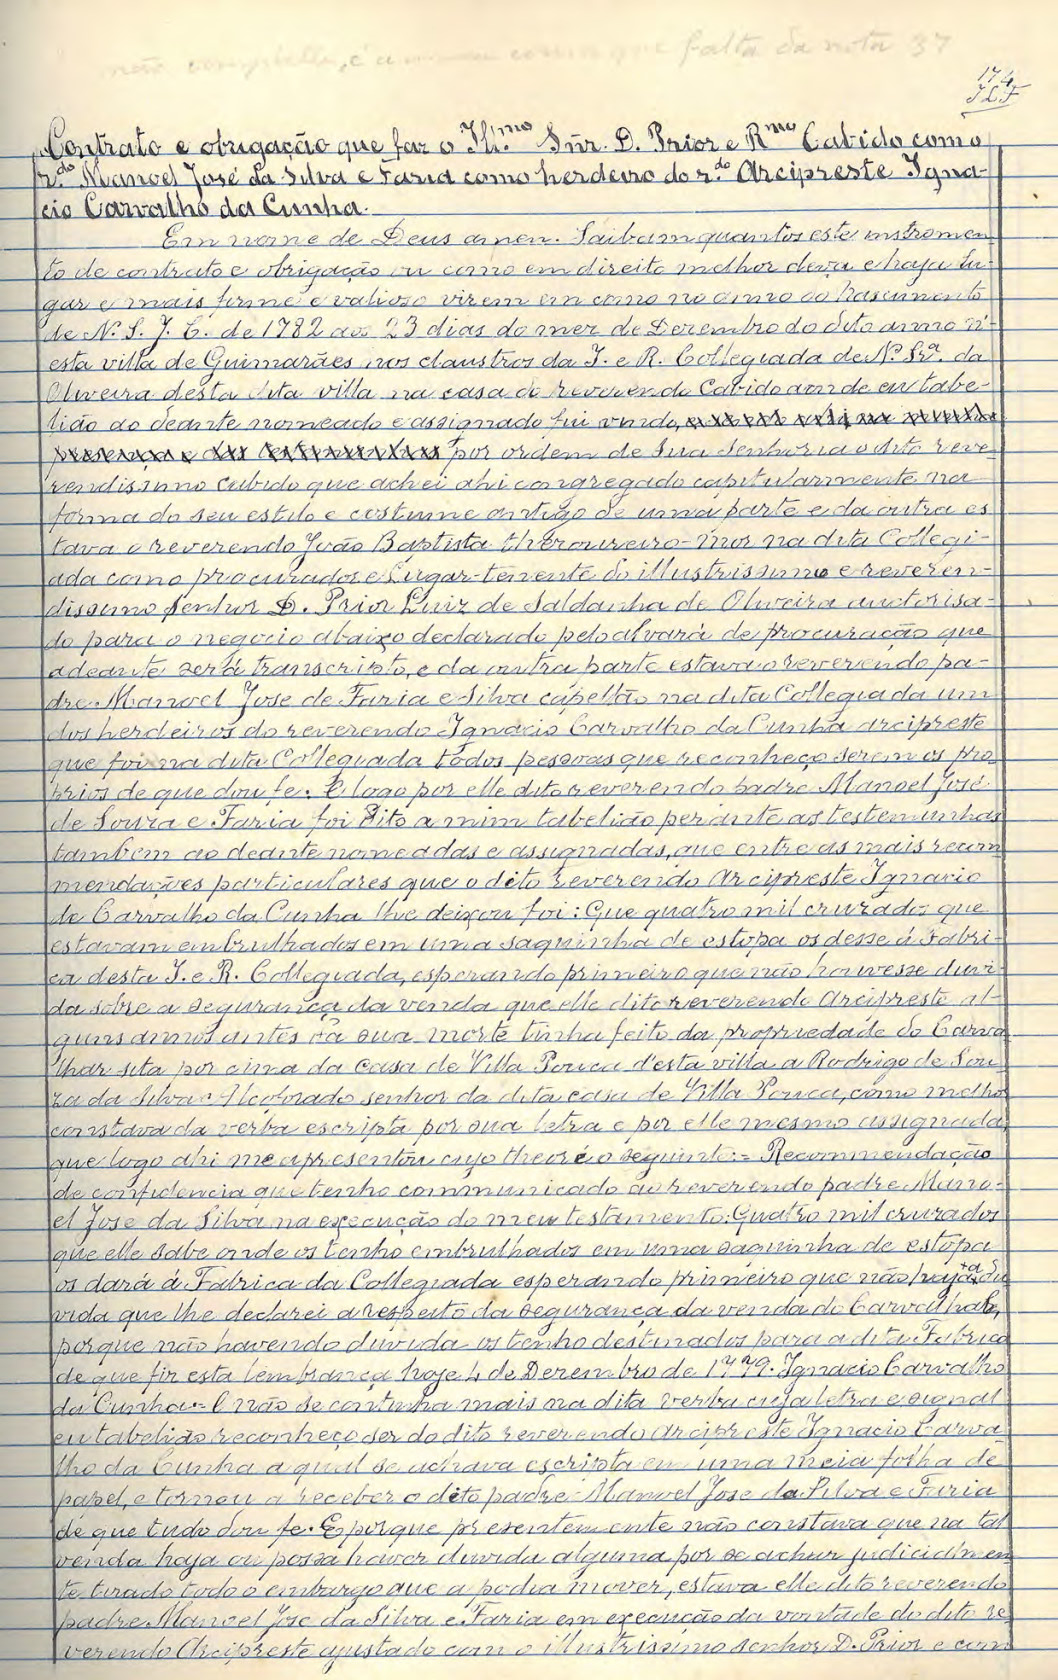 não completta, é a mesma cousa que falta da nota 37
174
J L F
Contrato e obrigação que faz o Ill.mo Snr. D. Prior e R.mo Cabido como
r.do Manoel José da Silva e Faria como herdeiro do r.do Arcipreste Igna-
cio Carvalho da Cunha.
Em nome de Deus amen. Saibam quantos este instromen
to de contrato e obrigação ou como em direito melhor deva e haja lu-
gar e mais firme e valioso virem em como no anno do Nascimento
de N. S. J. C. de 1782 aos 23 dias do mez de Dezembro do dito anno n'-
esta villa de Guimarães nos claustros da I. e R. Collegiada de N. Sr.a da
Oliveira desta dita villa na casa do reverendo Cabido aonde eu tabe-
lião ao deante nomeado e assignado fui vindo,
por ordem de Sua Senhoria o dito reve-
rendissimo Cabido que achei ahi congregado capitularmente na
forma do seu estilo e costume antigo de uma parte e da outra es
tava o reverendo João Baptista thezoureiro-mor na dita Collegi-
ada como procurador e Lugar-tenente do illustrissimo e reveren-
dissimo senhor D. Prior Luiz de Saldanha de Oliveira auctorisa-
do para o negocio abaixo declarado pelo alvará de procuração que
adeante será transcripto, e da outra parte estava o reverendo pa-
dre Manoel Jose de Faria e Silva capellão na dita Collegiada um
dos herdeiros do reverendo Ignacio Carvalho da Cunha arcipreste
que foi na dita Collegiada todos pessoas que reconheço serem os pro
prios de que dou fe. E logo por elle dito reverendo padre Manoel José
de Souza e Faria foi dito a mim tabelião perante as testemunhas
tambem ao deante nomeadas e assignadas, que entre as mais recom
mendações particulares que o dito reverendo Arcipreste Ignacio
de Carvalho da Cunha lhe deixou foi: Que quatro mil cruzados que
estavam embrulhados em uma saquinha de estopa os desse á Fabri-
ca desta I. e R. Collegiada, esperando primeiro que não houvesse duvi-
da sobre a segurança da venda que elle dito reverendo Arcipreste al-
guns annos antes da sua morte tinha feito da propriedade do Carva
lhar sita por cima da casa de Villa Pouca d'esta villa a Rodrigo de Sou-
za da Silva Alcoforado senhor da dita casa de Villa Pouca, como melhor
constava da verba escripta por sua letra e por elle mesmo assignada,
que logo ahi me apresentou cujo theor é o seguinte:- Recommendação
de confidencia que tenho communicado ao reverendo padre Mano-
el Jose da Silva na execução do meu testamento: Quatro mil cruzados
que elle sabe onde os tenho embrulhados em uma saquinha de estopa
os dará á Fabrica da Collegiada esperando primeiro que não haja du
vida que lhe declarei a respeito da segurança da venda do Carvalhal,
porque não havendo duvida os tenho destinados para a dita Fabrica
de que fiz esta lembrança hoje 4 de Dezembro de 1779. Ignacio Carvalho
da Cunha.- E não se continha mais na dita verba cuja letra e signal
eu tabelião reconheço ser do dito reverendo Arcipreste Ignacio Carva-
lho da Cunha a qual se achava escripta em uma meia folha de
papel, e tornou a receber o dito padre Manoel Jose da Silva e Faria
de que tudo dou fe. E porque presentemente não constava que na tal
venda haja ou possa haver duvida alguma por se achar judicialmen
te tirado todo o embargo que a podia mover, estava elle dito reverendo
padre Manoel Jose da Silva e Faria em execução da vontade do dito re
verendo Arcipreste ajustado com o illustrissimo senhor D. Prior e com